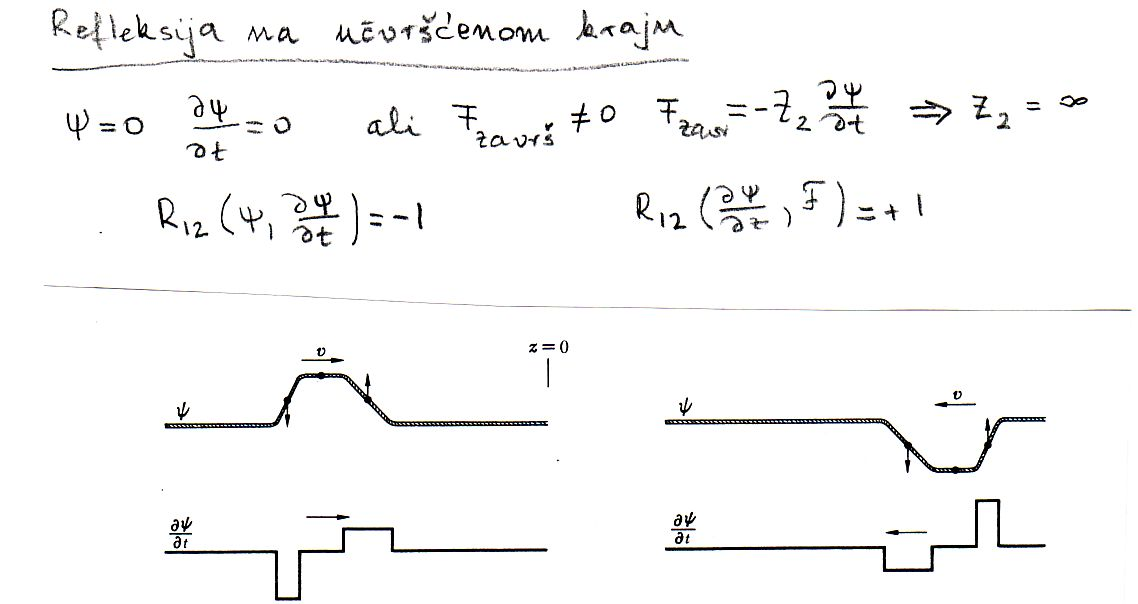 Refleksija na učvršćenom kraju
Ψ = 0 ∂Ψ/∂t = 0 ali F_završ ≠ 0 F_zavr = -Z₂ ∂Ψ/∂t ⇒ Z₂ = ∞
R₁₂ (Ψ, ∂Ψ/∂t) = -1 R₁₂ (∂Ψ/∂z, F) = +1
v z = 0
ψ ψ v
∂ψ/∂t ∂ψ/∂t